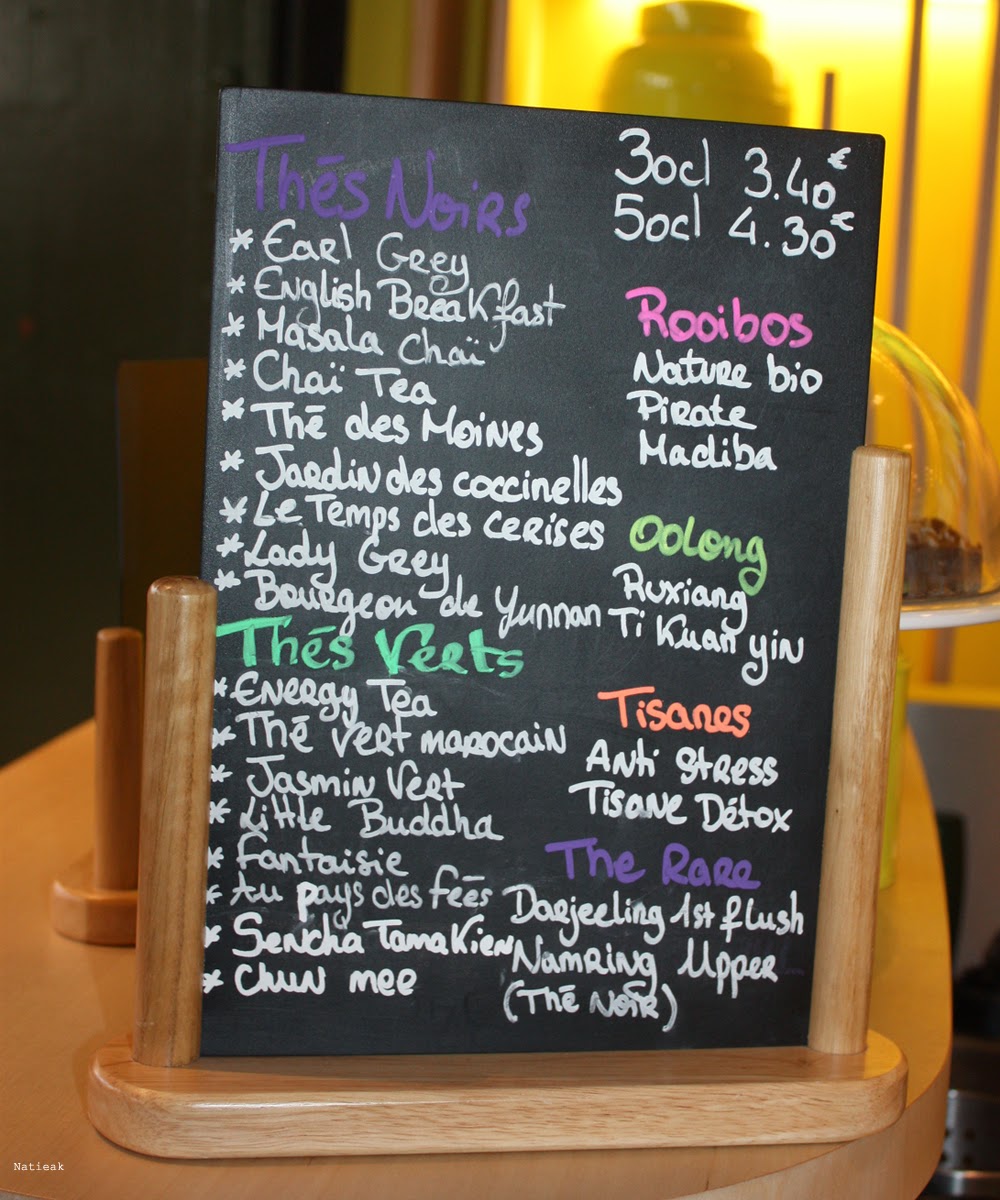 Thés Noirs
* Earl Grey
* English Breakfast
* Masala Chaï
* Chaï Tea
* Thé des Moines
* Jardin des coccinelles
* Le Temps des cerises
* Lady Grey
* Bourgeon de Yunnan
Thés Verts
* Energy Tea
* Thé vert marocain
* Jasmin Vert
* Little Buddha
* Fantaisie
* Au pays des fées
* Sencha Tamakien
* Chun mee
30cl 3.40€
50cl 4.30€
Rooibos
Nature bio
Pirate
Madiba
Oolong
Ruxiang
Ti Kuan yin
Tisanes
Anti Stress
Tisane Détox
The Rare
Darjeeling 1st flush
Namring Upper
(Thé Noir)
Natieak